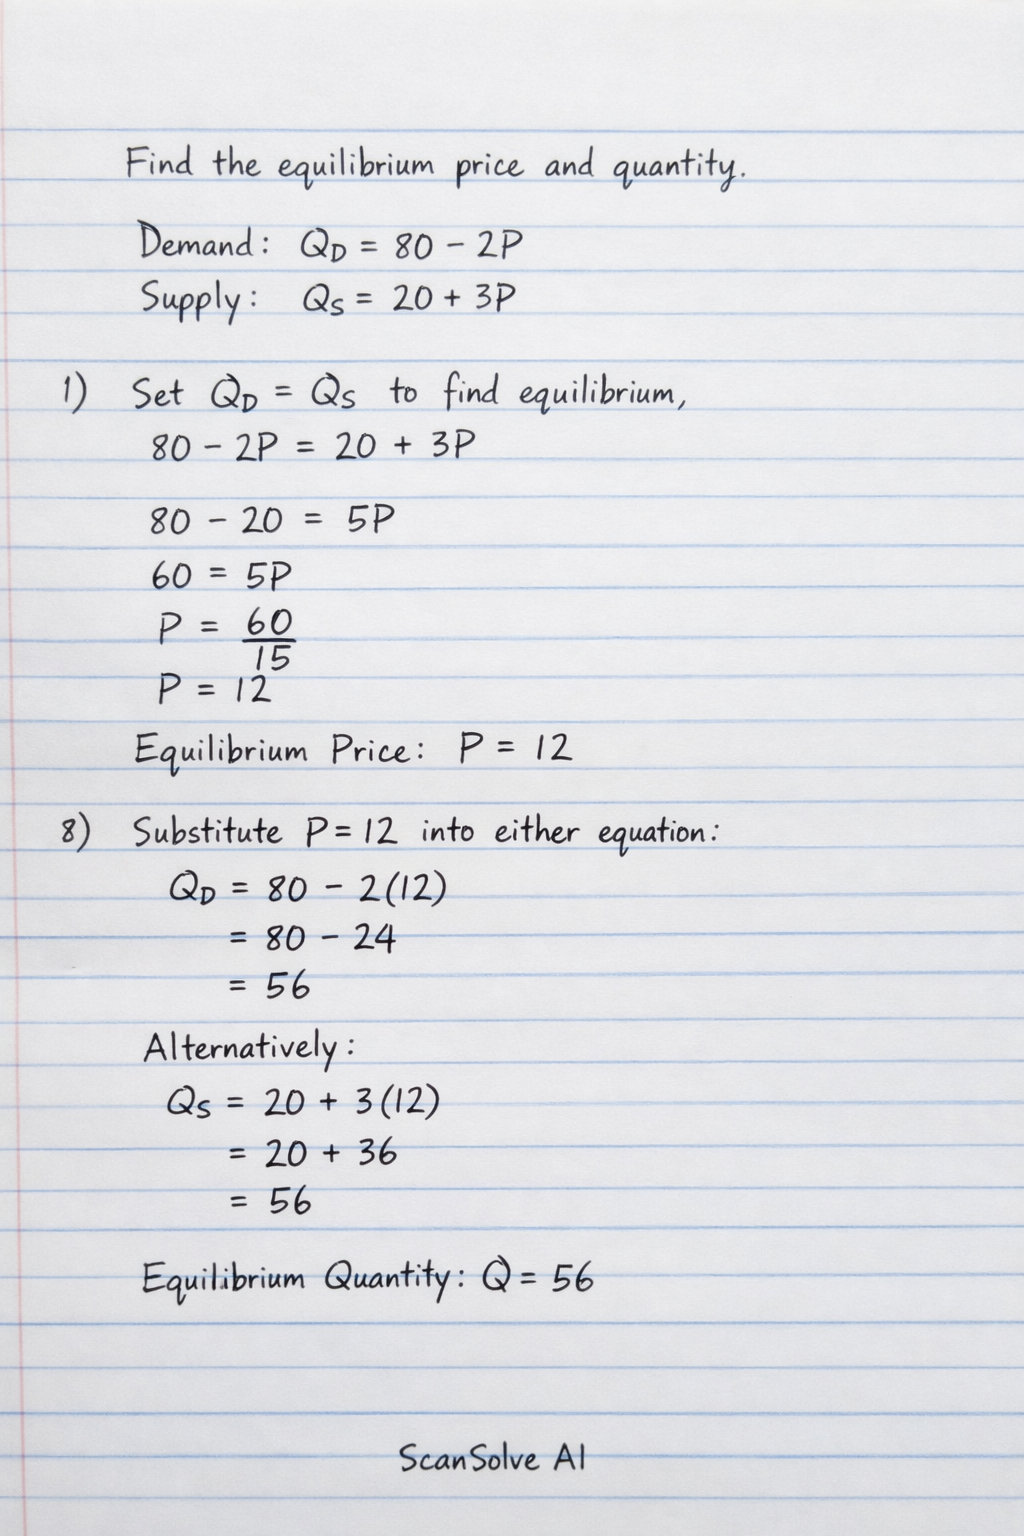 Find the equilibrium price and quantity.
Demand: QD = 80 - 2P
Supply: QS = 20 + 3P
1) Set QD = QS to find equilibrium,
80 - 2P = 20 + 3P
80 - 20 = 5P
60 = 5P
P = 60
15
P = 12
Equilibrium Price: P = 12
8) Substitute P = 12 into either equation:
QD = 80 - 2(12)
= 80 - 24
= 56
Alternatively:
QS = 20 + 3(12)
= 20 + 36
= 56
Equilibrium Quantity: Q = 56
ScanSolve AI